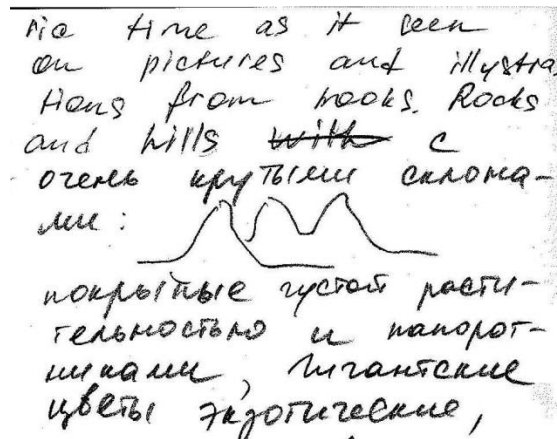 ric time as it seen
on pictures and illystra
tions from books. Rocks
and hills with с
очень крутыми склона-
ми:
покрытые густой расти-
тельностью и папорот-
никами, гигантские
цветы экзотические,